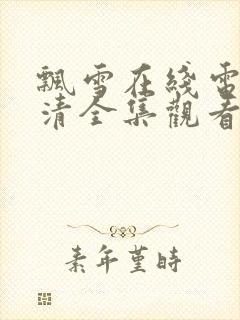 飄雪在綫電
清全集觀看
素年堇時